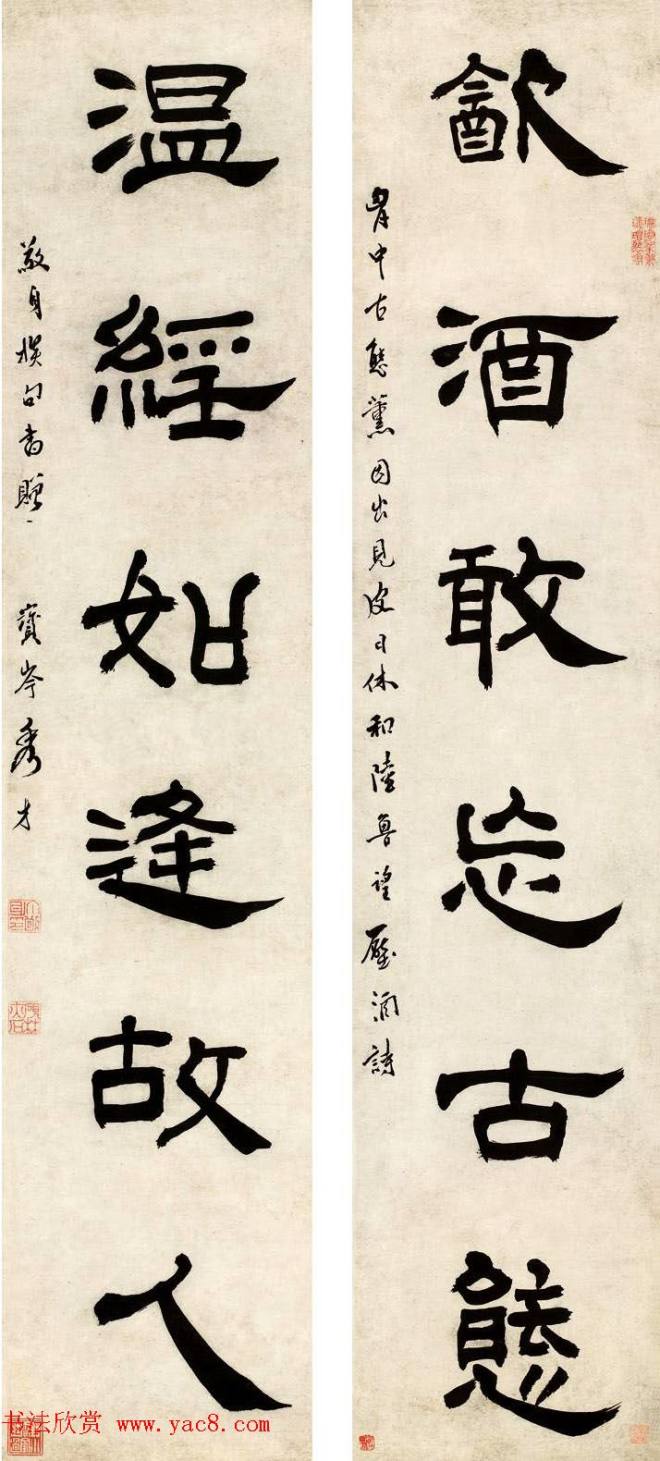 歙酒敢忘古態
胷中古態薰因出見皮日休和陸魯望壓酒詩
温經如逢故人
敬身撰句書贈
寶岑秀才
书法欣赏 www.yac8.com